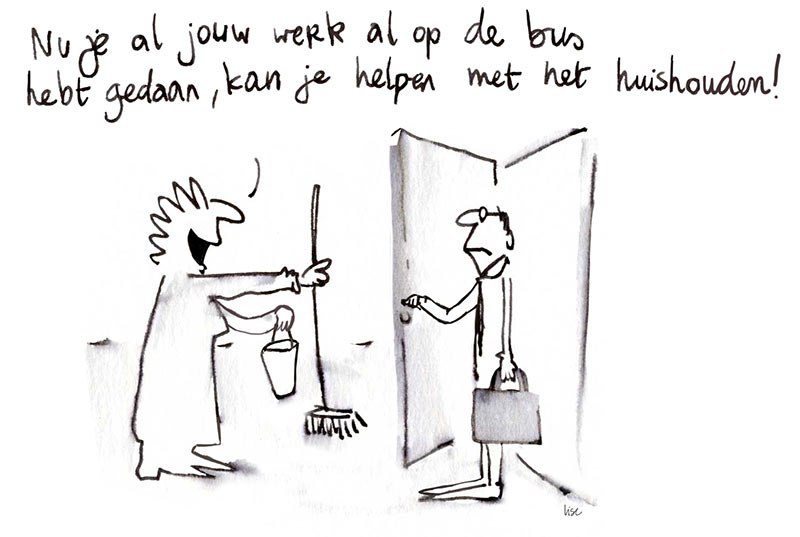 Nu je al jouw werk al op de bus
hebt gedaan, kan je helpen met het huishouden!
Lise